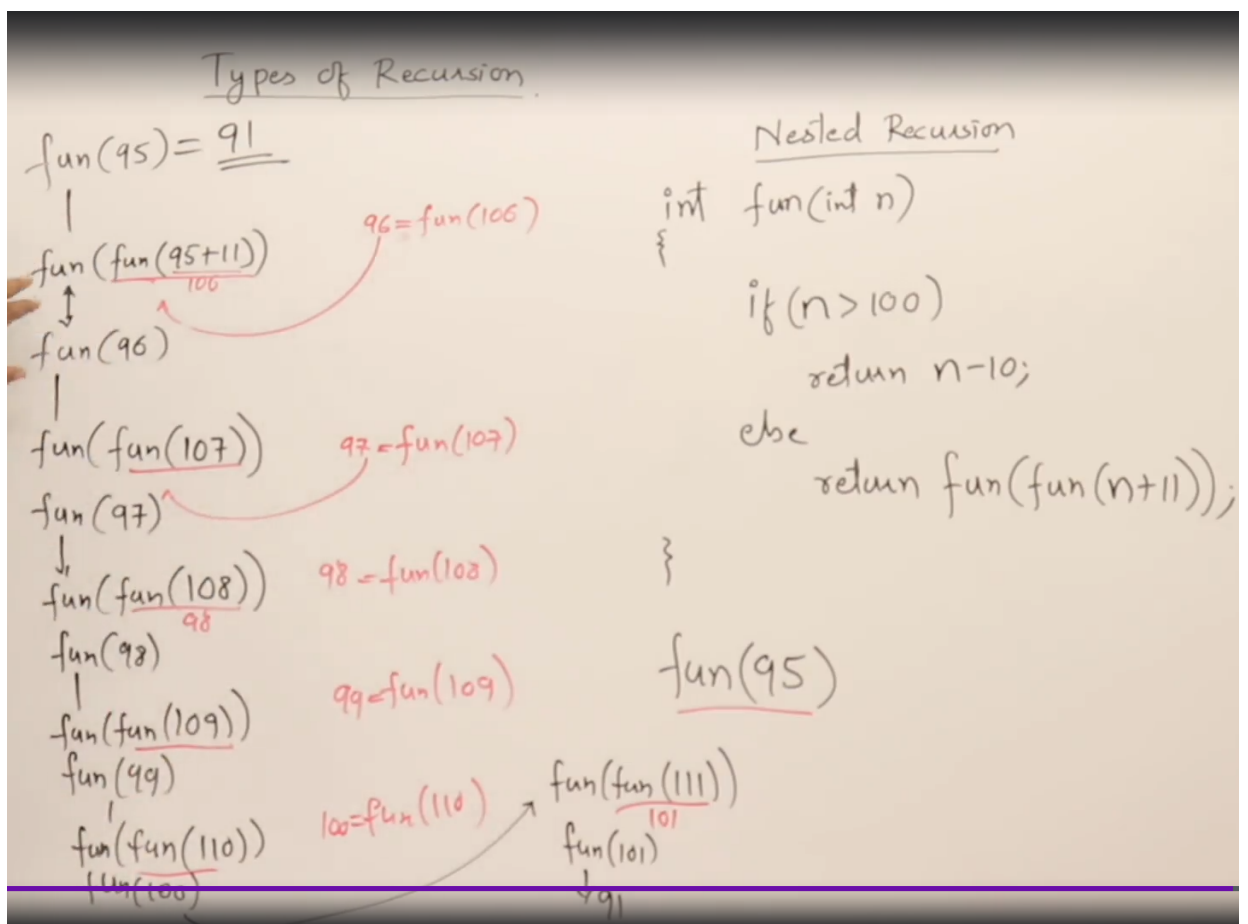 Types of Recursion.
fun(95) = 91
fun(fun(95+11))
106
96=fun(106)
fun(96)
fun(fun(107))
97=fun(107)
fun(97)
fun(fun(108))
98
98=fun(108)
fun(98)
fun(fun(109))
99=fun(109)
fun(99)
fun(fun(110))
100=fun(110)
fun(100)
Nested Recursion
int fun(int n)
{
if(n>100)
return n-10;
else
return fun(fun(n+11));
}
fun(95)
fun(fun(111))
101
fun(101)
91